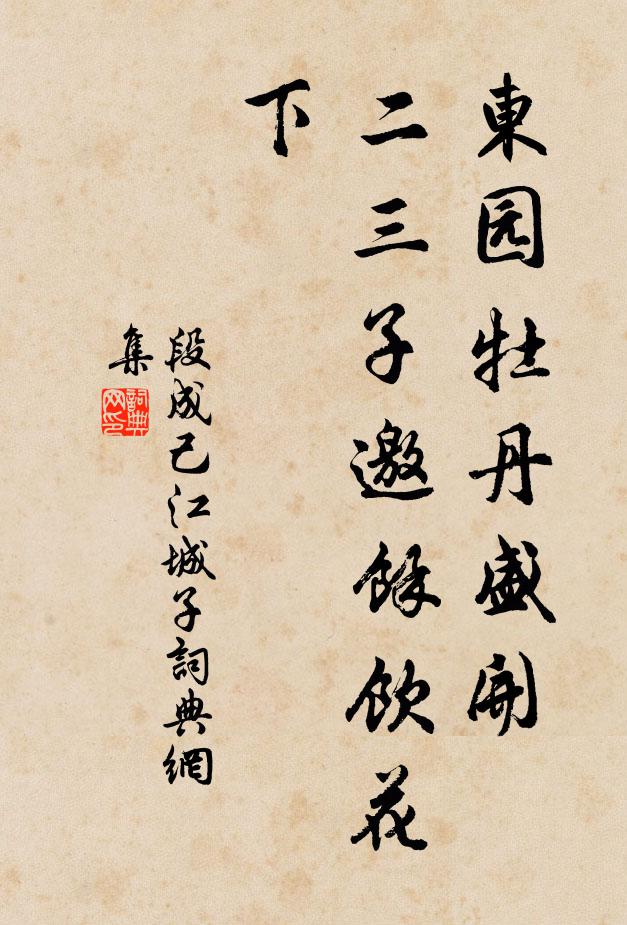 東园牡丹盛開
二三子邀餘飲花
下
段成己江城子詞典網
集
詞典
网印